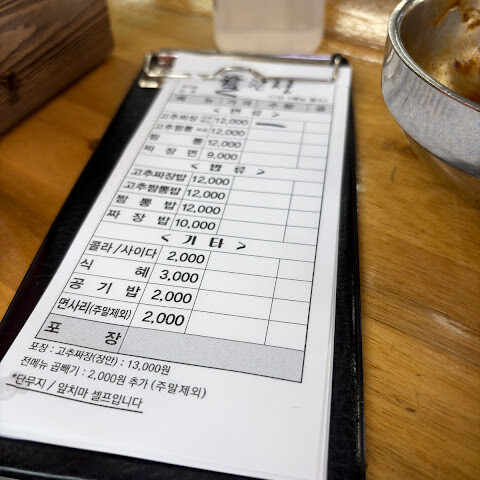 메 뉴 가 격 수 량 금
< 면 류 >
고추짜장 12,000
고추짬뽕 12,000
짬 뽕 12,000
짜 장 면 9,000
< 밥 류 >
고추짜장밥 12,000
고추짬뽕밥 12,000
짬 뽕 밥 12,000
짜 장 밥 10,000
< 기 타 >
콜라/사이다 2,000
식 혜 3,000
공 기 밥 2,000
면사리(주말제외) 2,000
포 장
포장 : 고추짜장(장만) : 13,000원
전메뉴 곱빼기 : 2,000원 추가 (주말제외)
*단무지 / 앞치마 셀프입니다